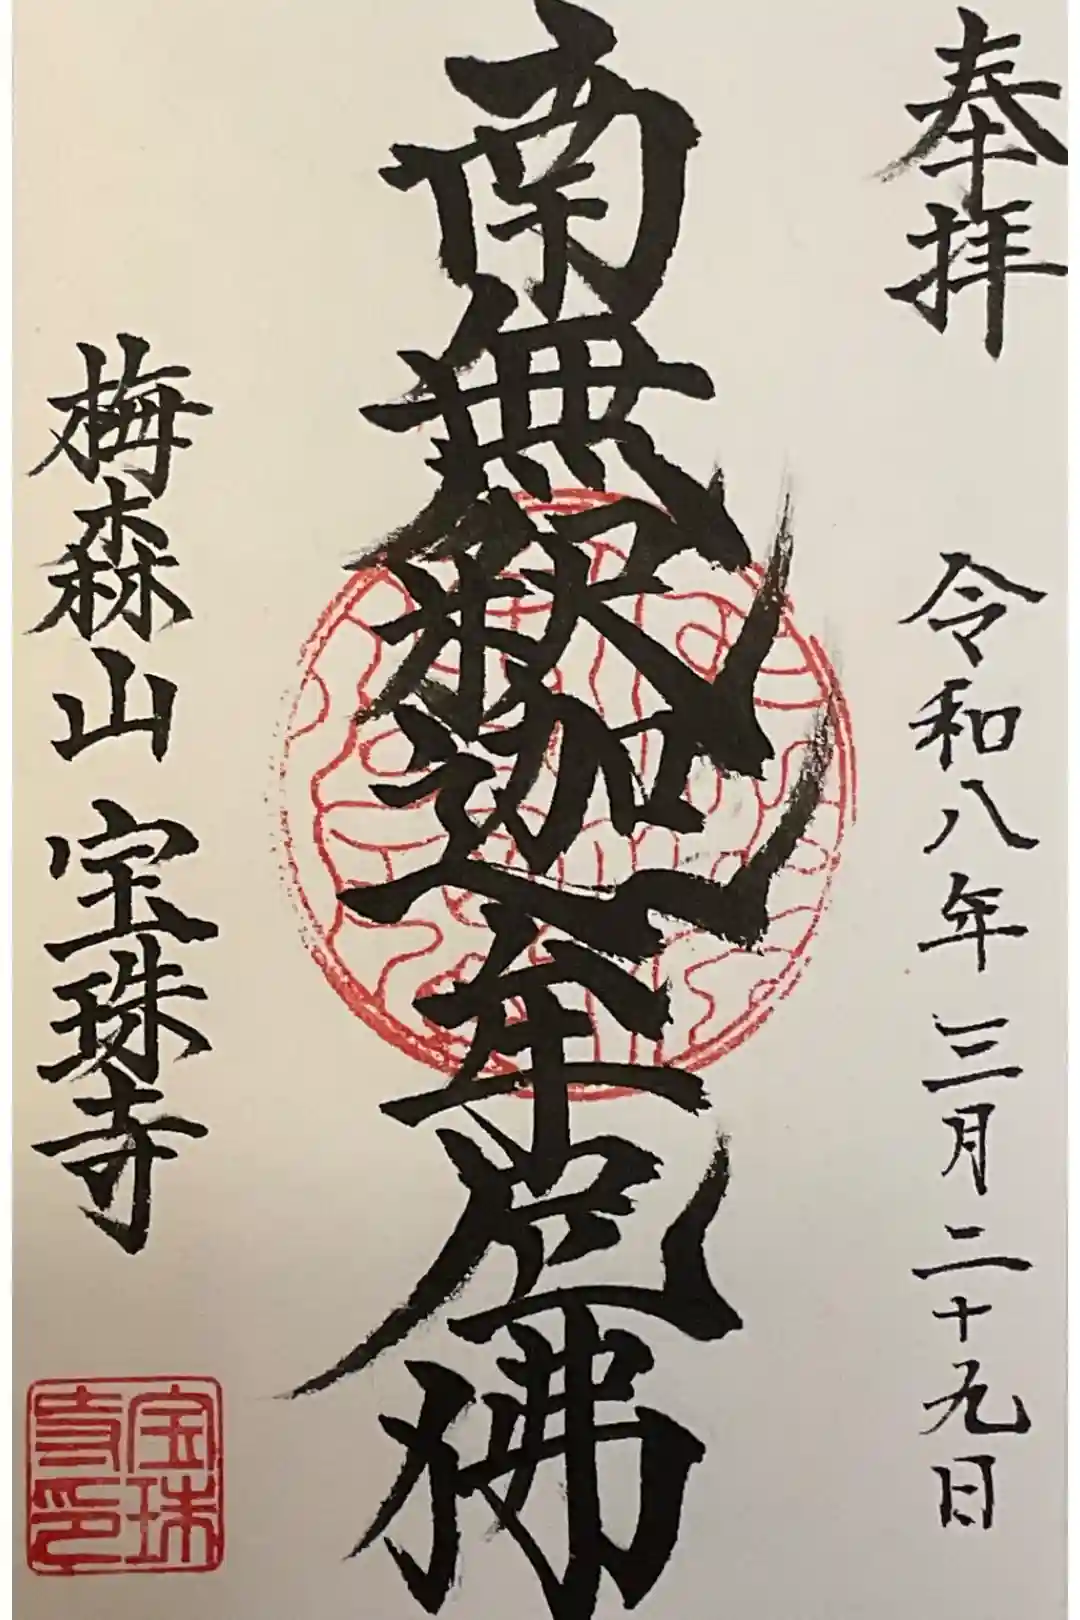 奉拝
令和八年三月二十九日
南無釈迦牟尼佛
梅森山 宝珠寺
宝珠
寺印